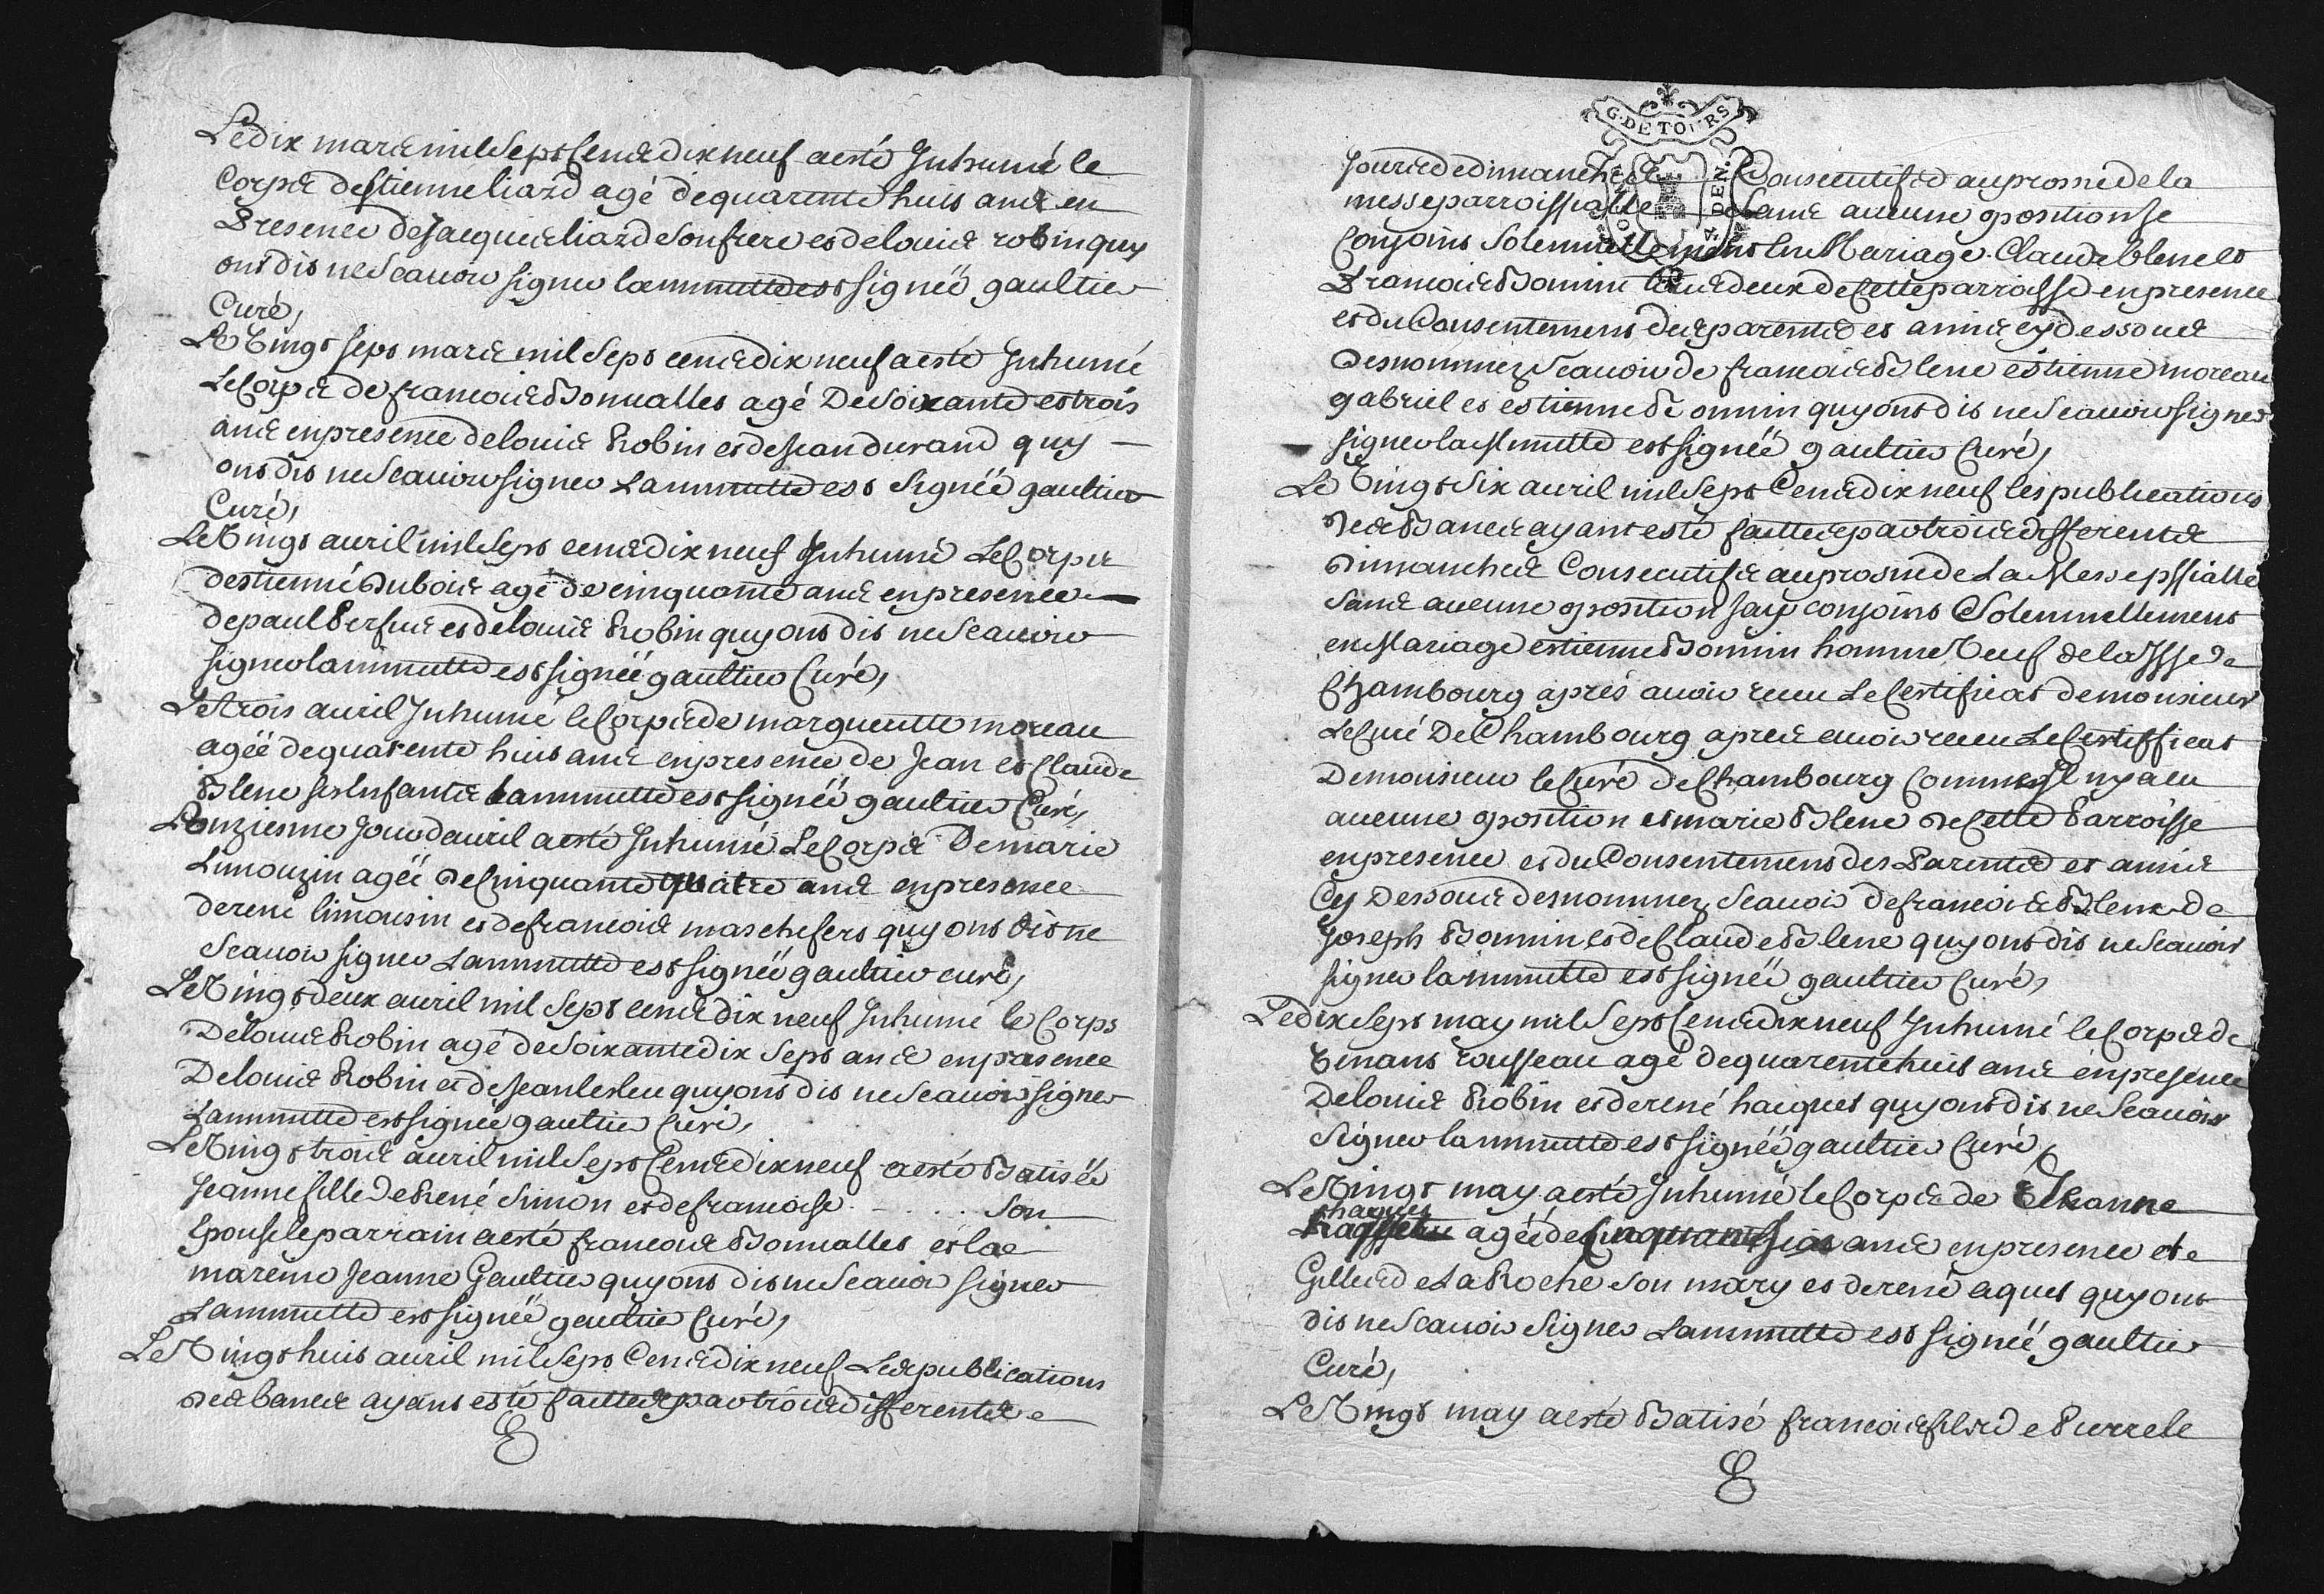 Le dix mars mil sept cens dix neuf a esté Inhumé le
Corps destienne liard agé de quarente huit ans en
Presence de Jacques liard son frere et de louis robin quy
ont dit ne scauoir signer la minutte est signéé gaultier
Curé,
Le Vingt sept mars mil sept cens dix neuf a esté Inhumé
Le Corps de francois Bonualles agé De soixante et trois
ans en presence de louis Robin et de Jean durand quy
ont dit ne scauoir signer La minutte est signéé gaultier
Curé,
Le Vingt auril mil sept cens dix neuf Inhumé Le Corps
destienne dubois agé de cinquante ans en presence
de paul et de louis Robin quy ont dit ne scauoir
signer la minutte est signéé gaultier Curé,
Le trois auril Inhumé le Corps de margueritte moreau
agéé de quarente huit ans en presence de Jean et Claude
Blene ses Enfants La minutte est signéé gaultier Curé,
Lonziesme Jour dauril a esté Inhumé Le Corps De marie
Limouzin agéé de Cinquante quatre ans en presence
de rené limousin et de francois maschefert quy ont dit ne
scauoir signer La minutte est signéé gaultier curé,
Le Vingt deux auril mil sept cens dix neuf Inhumé le Corps
De louis Robin agé de soixante dix sept ans en presence
De louis Robin et de Jean lesleu quy ont dit ne scauoir signer
La minutte est signéé gaultier Curé,
Le Vingt trois auril mil sept Cens dix neuf a esté Batiséé
Jeanne fille de René Simon et de francoise . . . . . son
Epouse le parrain a esté francois Bonualles et la
mareine Jeanne Gaultier quy ont dit ne scauoir signer
La minutte est signéé gaultier Curé,
Le Vingt huit auril mil sept Cens dix neuf Les publications
des bancs ayant esté faittes par trois differents
G. DE TOURS
DEN.
Jours de dimanches Consecutifs au prosne de la
messe parroissialle sans aucune oposition Je
Conjoins Solennellement En Mariage Claude blene et
Francoise Bonnin tous deux de Cette parroisse en presence
et du Consentement des parents et amis cy dessous
Desnommez scauoir de francois Blene estienne moreau
gabriel et estienne Bonnin quy ont dit ne scauoir signer
signer la Minutte est signéé gaultier Curé,
Le Vingt six auril mil sept Cens dix neuf les publications
des Bancs ayant esté faittes par trois differents
dimanches Consecutifs au prosne de La Messe pssialle
sans aucune oposition Jay conjoins Solennellement
en Mariage estienne Bonnin homme Veuf de la psse de
Chambourg aprés auoir receu Le Certificat de monsieur
Le Curé De Chambourg apres auoir receu Le Certifficat
De monsieur le Curé de Chambourg Comme Il ny a eu
aucune oposition et marie Blene de Cette Parroisse
en presence et du Consentement des Parents et amis
Cy Dessous desnommez scauoir de francois Blene de
Joseph Bonnin et de Claude Blene quy ont dit ne scauoir
signer la minutte est signéé gaultier Curé,
Le dix sept may mil sept Cens dix neuf Inhumé le Corps de
Venant rousseau agé de quarente huit ans en presence
De louis Robin et de rené haiques quy ont dit ne scauoir
signer la minutte est signéé gaultier Curé,
Le Vingt may a esté Inhumé le Corps de Jeanne
haques
agéé de Cinquante six ans en presence de
Gilles de La Roche son mary et de rené aques quy ont
dit ne scauoir signer La minutte est signéé gaultier
Curé,
Le Vingt may a esté Batisé francois fils de Pierre le